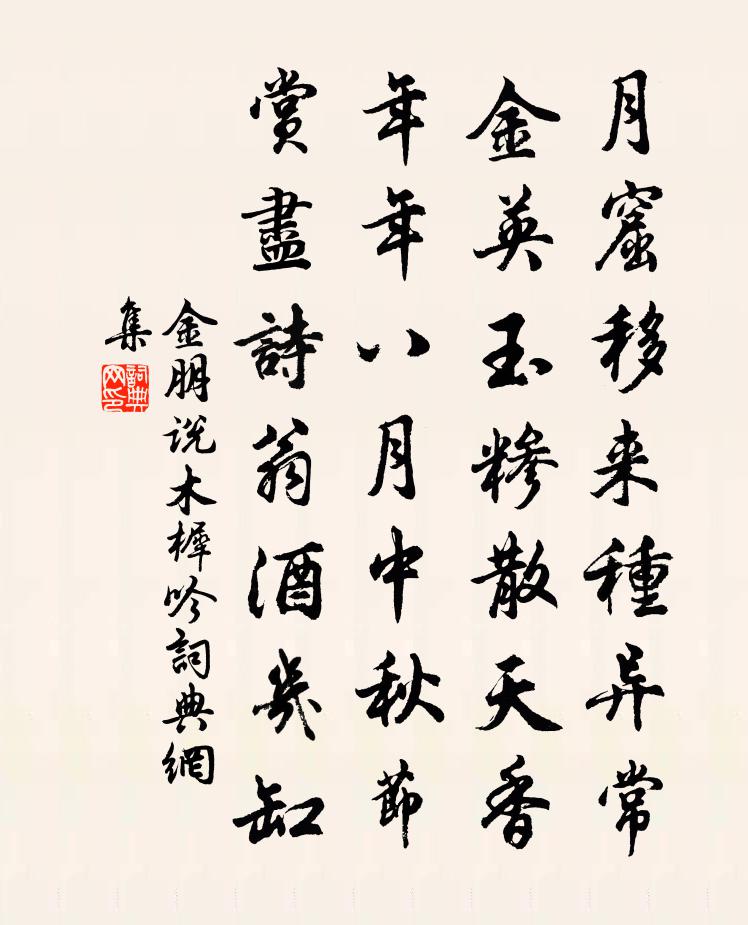 月窟移来種异常
金英玉糝散天香
年年八月中秋節
賞盡詩翁酒幾缸
金朋说木樨吟詞典網
集
詞典網印